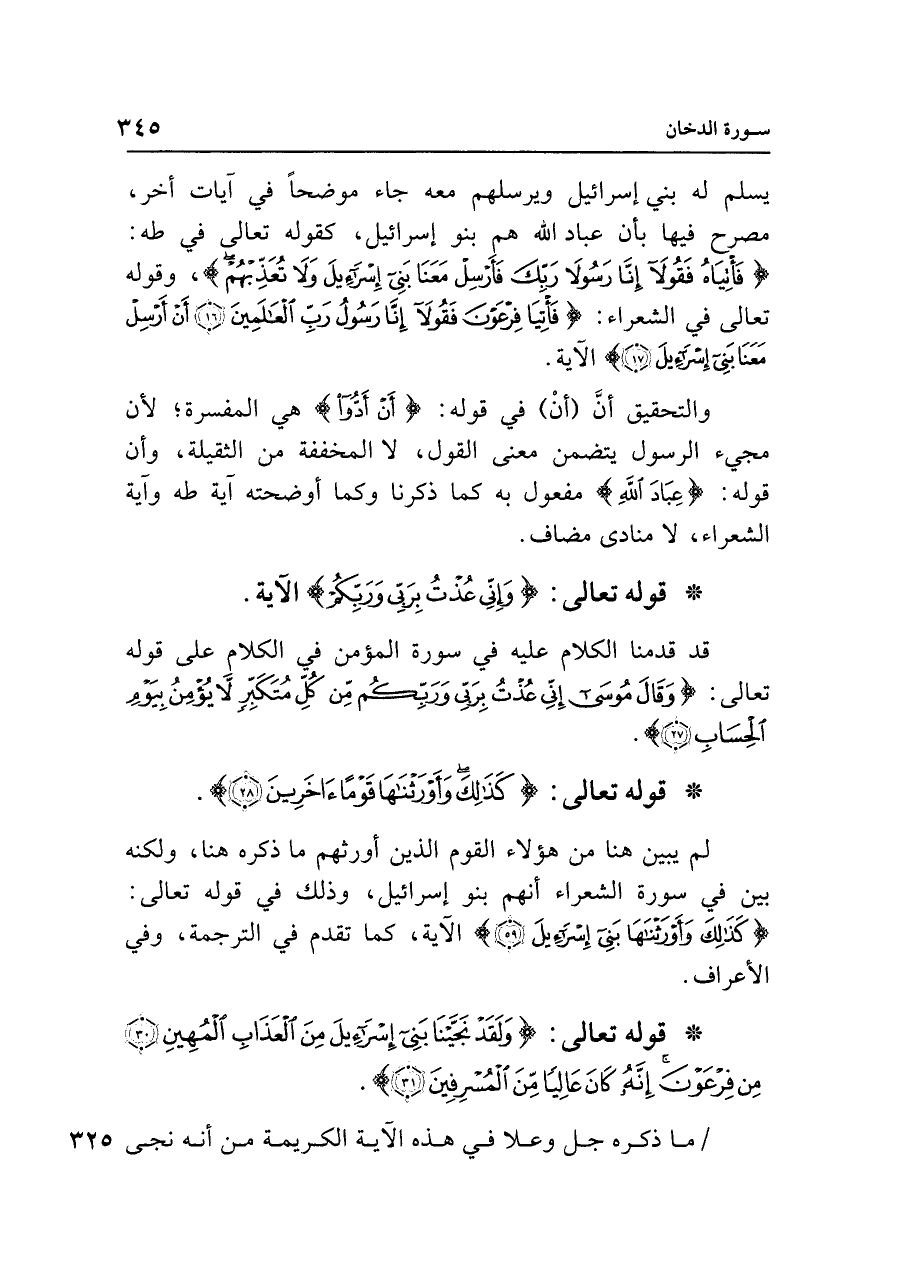 سورة الدخان ٣٤٥
يسلم له بني إسرائيل ويرسلهم معه جاء موضحاً في آيات أخر،
مصرح فيها بأن عباد الله هم بنو إسرائيل، كقوله تعالى في طه:
﴿ فَأْتِيَاهُ فَقُولَآ إِنَّا رَسُولَا رَبِّكَ فَأَرْسِلْ مَعَنَا بَنِىٓ إِسْرَٰٓءِيلَ وَلَا تُعَذِّبْهُمْ ۖ﴾، وقوله
تعالى في الشعراء: ﴿ فَأْتِيَا فِرْعَوْنَ فَقُولَآ إِنَّا رَسُولُ رَبِّ ٱلْعَٰلَمِينَ ﴿١٦﴾ أَنْ أَرْسِلْ
مَعَنَا بَنِىٓ إِسْرَٰٓءِيلَ ﴿١٧﴾﴾ الآية.
والتحقيق أنَّ (أنْ) في قوله: ﴿ أَنْ أَدُّوٓاْ ﴾ هي المفسرة؛ لأن
مجيء الرسول يتضمن معنى القول، لا المخففة من الثقيلة، وأن
قوله: ﴿ عِبَادَ ٱللَّهِ ﴾ مفعول به كما ذكرنا وكما أوضحته آية طه وآية
الشعراء، لا منادى مضاف.
* قوله تعالى: ﴿ وَإِنِّى عُذْتُ بِرَبِّى وَرَبِّكُمْ ﴾ الآية.
قد قدمنا الكلام عليه في سورة المؤمن في الكلام على قوله
تعالى: ﴿ وَقَالَ مُوسَىٰٓ إِنِّى عُذْتُ بِرَبِّى وَرَبِّكُم مِّن كُلِّ مُتَكَبِّرٍ لَّا يُؤْمِنُ بِيَوْمِ
ٱلْحِسَابِ ﴿٢٧﴾﴾.
* قوله تعالى: ﴿ كَذَٰلِكَ ۖ وَأَوْرَثْنَٰهَا قَوْمًا ءَاخَرِينَ ﴿٢٨﴾﴾.
لم يبين هنا من هؤلاء القوم الذين أورثهم ما ذكره هنا، ولكنه
بين في سورة الشعراء أنهم بنو إسرائيل، وذلك في قوله تعالى:
﴿ كَذَٰلِكَ وَأَوْرَثْنَٰهَا بَنِىٓ إِسْرَٰٓءِيلَ ﴿٥٩﴾﴾ الآية، كما تقدم في الترجمة، وفي
الأعراف.
* قوله تعالى: ﴿ وَلَقَدْ نَجَّيْنَا بَنِىٓ إِسْرَٰٓءِيلَ مِنَ ٱلْعَذَابِ ٱلْمُهِينِ ﴿٣٠﴾
مِن فِرْعَوْنَ ۚ إِنَّهُۥ كَانَ عَالِيًا مِّنَ ٱلْمُسْرِفِينَ ﴿٣١﴾﴾.
/ ما ذكره جل وعلا في هذه الآية الكريمة من أنه نجى ٣٢٥